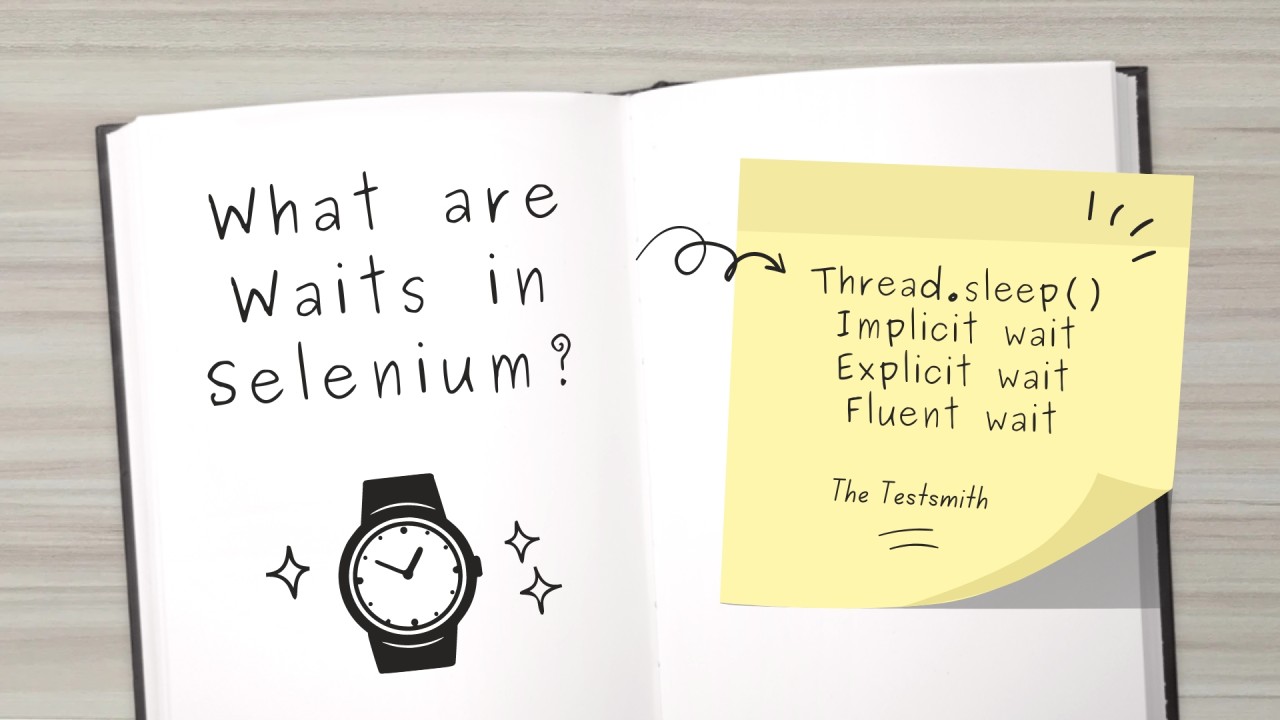 What are
Waits in
Selenium?
Thread.sleep()
Implicit wait
Explicit wait
Fluent wait
The Testsmith